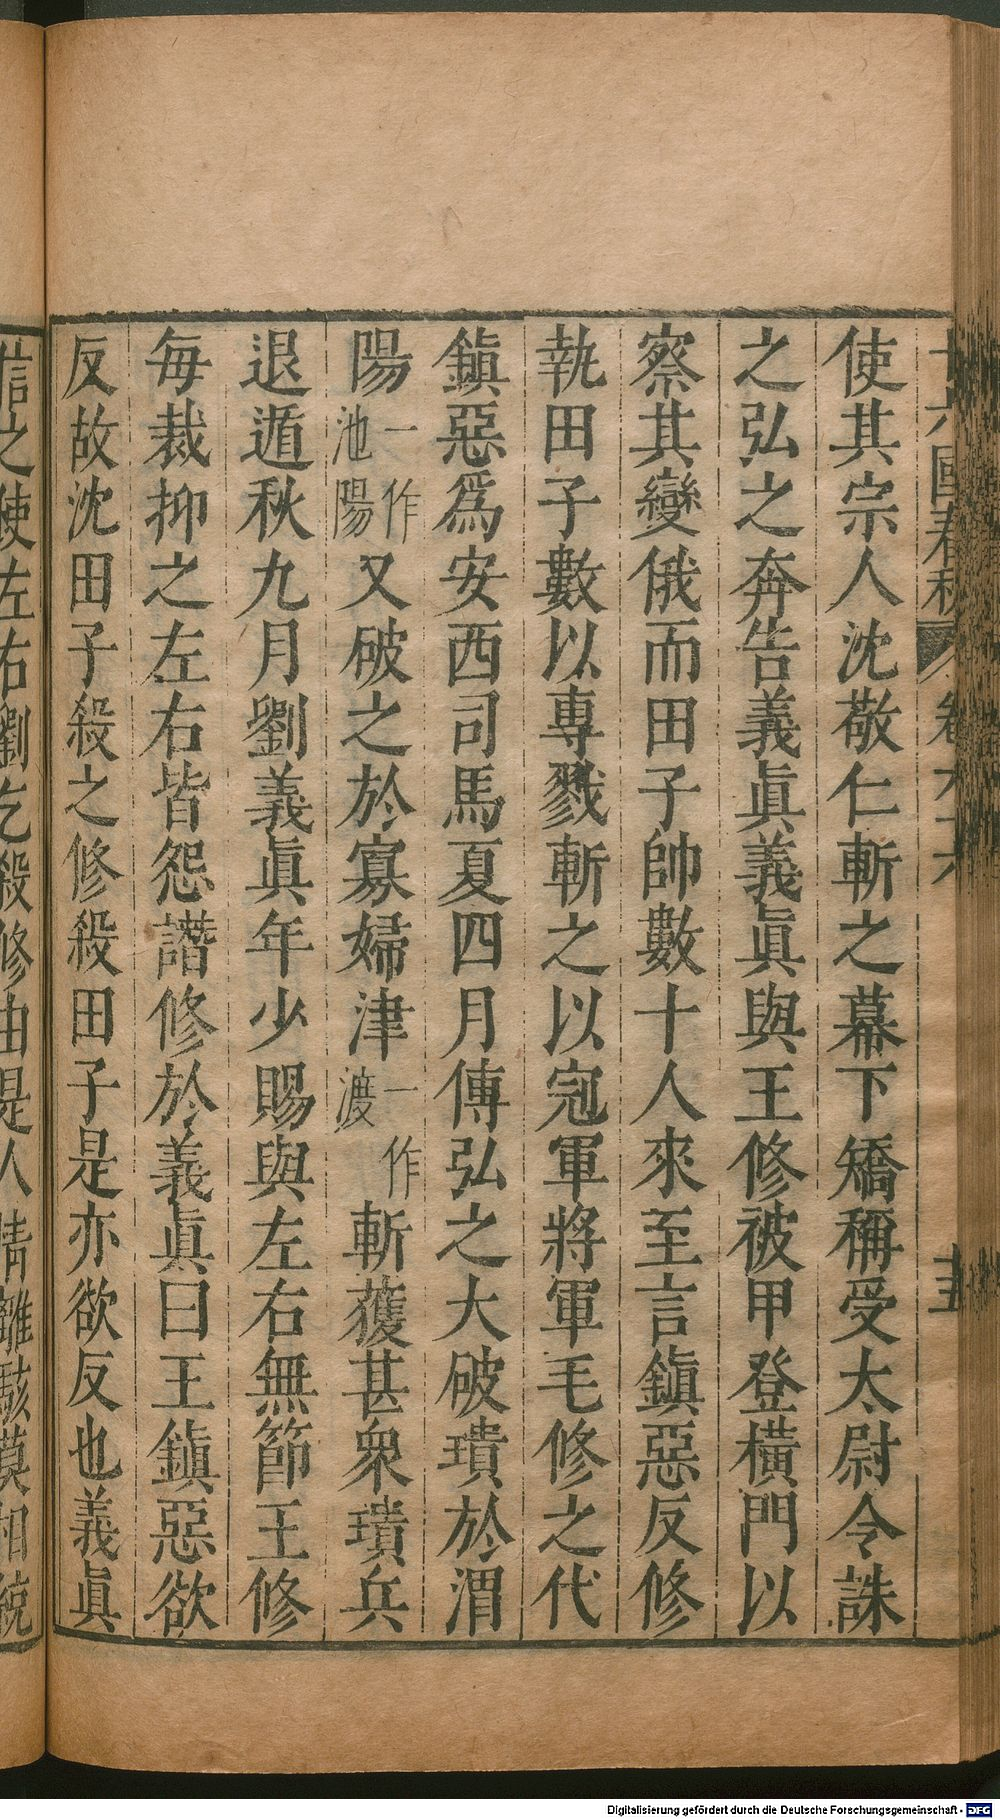 十六國春秋 卷六十六 十五
使其宗人沈敬仁斬之幕下矯稱受太尉令誅
之弘之奔告義眞義眞與王修被甲登橫門以
察其變俄而田子帥數十人來至言鎮惡反修
執田子數以專戮斬之以冠軍將軍毛修之代
鎮惡爲安西司馬夏四月傅弘之大破璝於渭
陽一作池陽又破之於寡婦津一作渡斬獲甚衆璝兵
退遁秋九月劉義眞年少賜與左右無節王修
每裁抑之左右皆怨譖修於義眞曰王鎮惡欲
反故沈田子殺之修殺田子是亦欲反也義眞
信之使左右劉乞殺修由是人情離駭莫相統
Digitalisierung gefördert durch die Deutsche Forschungsgemeinschaft - DFG